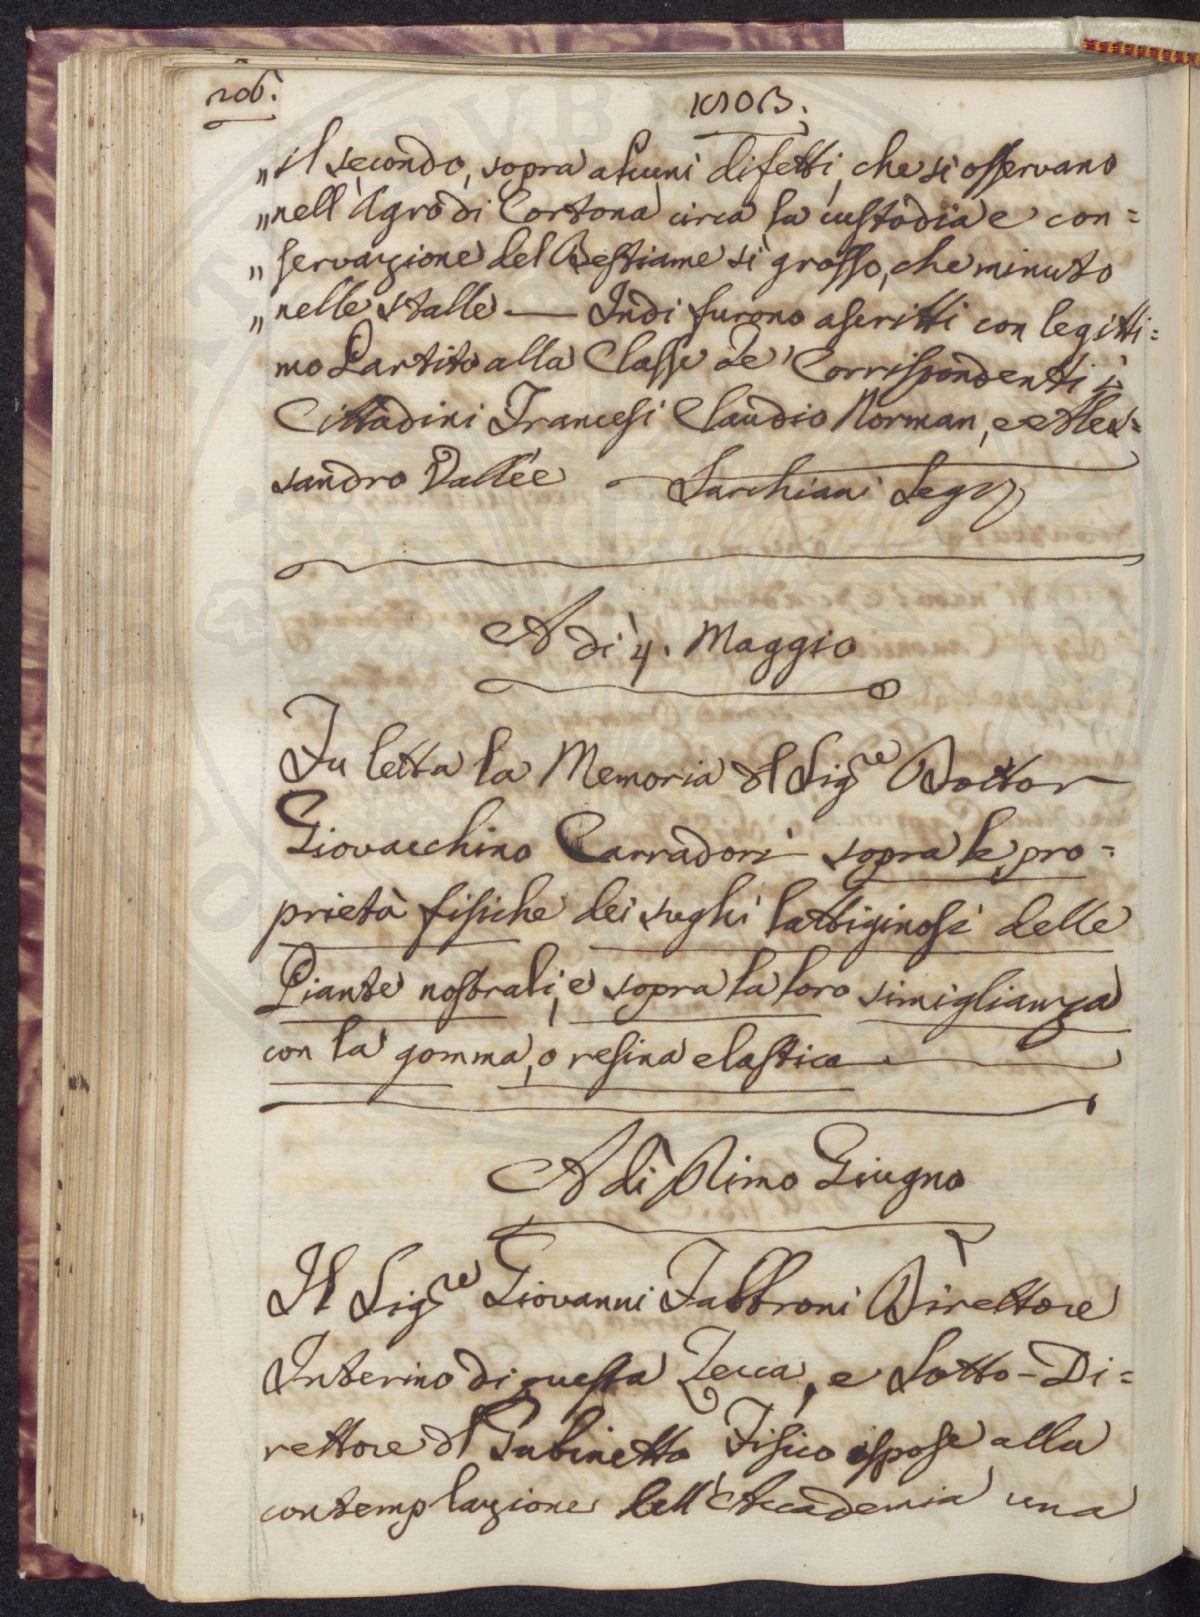 206.
1803.
„ il secondo, sopra alcuni difetti, che si osservano
„ nell'Agro di Cortona circa la custodia e con=
„ servazione del Bestiame sì grosso, che minuto
„ nelle stalle — Indi furono ascritti con legitti=
mo Partito alla Classe de' Corrispondenti i
Cittadini Francesi Claudio Norman, e Ales=
sandro Vallée Sarchiani Seg.
A dì 4. Maggio
Fu letta la Memoria del Sig.re Dottor
Giovacchino Carradori sopra le pro=
prietà fisiche dei sughi lattiginosi delle
Piante nostrali, e sopra la loro simiglianza
con la gomma, o resina elastica
A dì Primo Giugno
Il Sig.re Giovanni Fabbroni Direttore
Interino di questa Zecca, e Sotto-Di=
rettore del Gabinetto Fisico espose alla
contemplazione dell'Accademia una